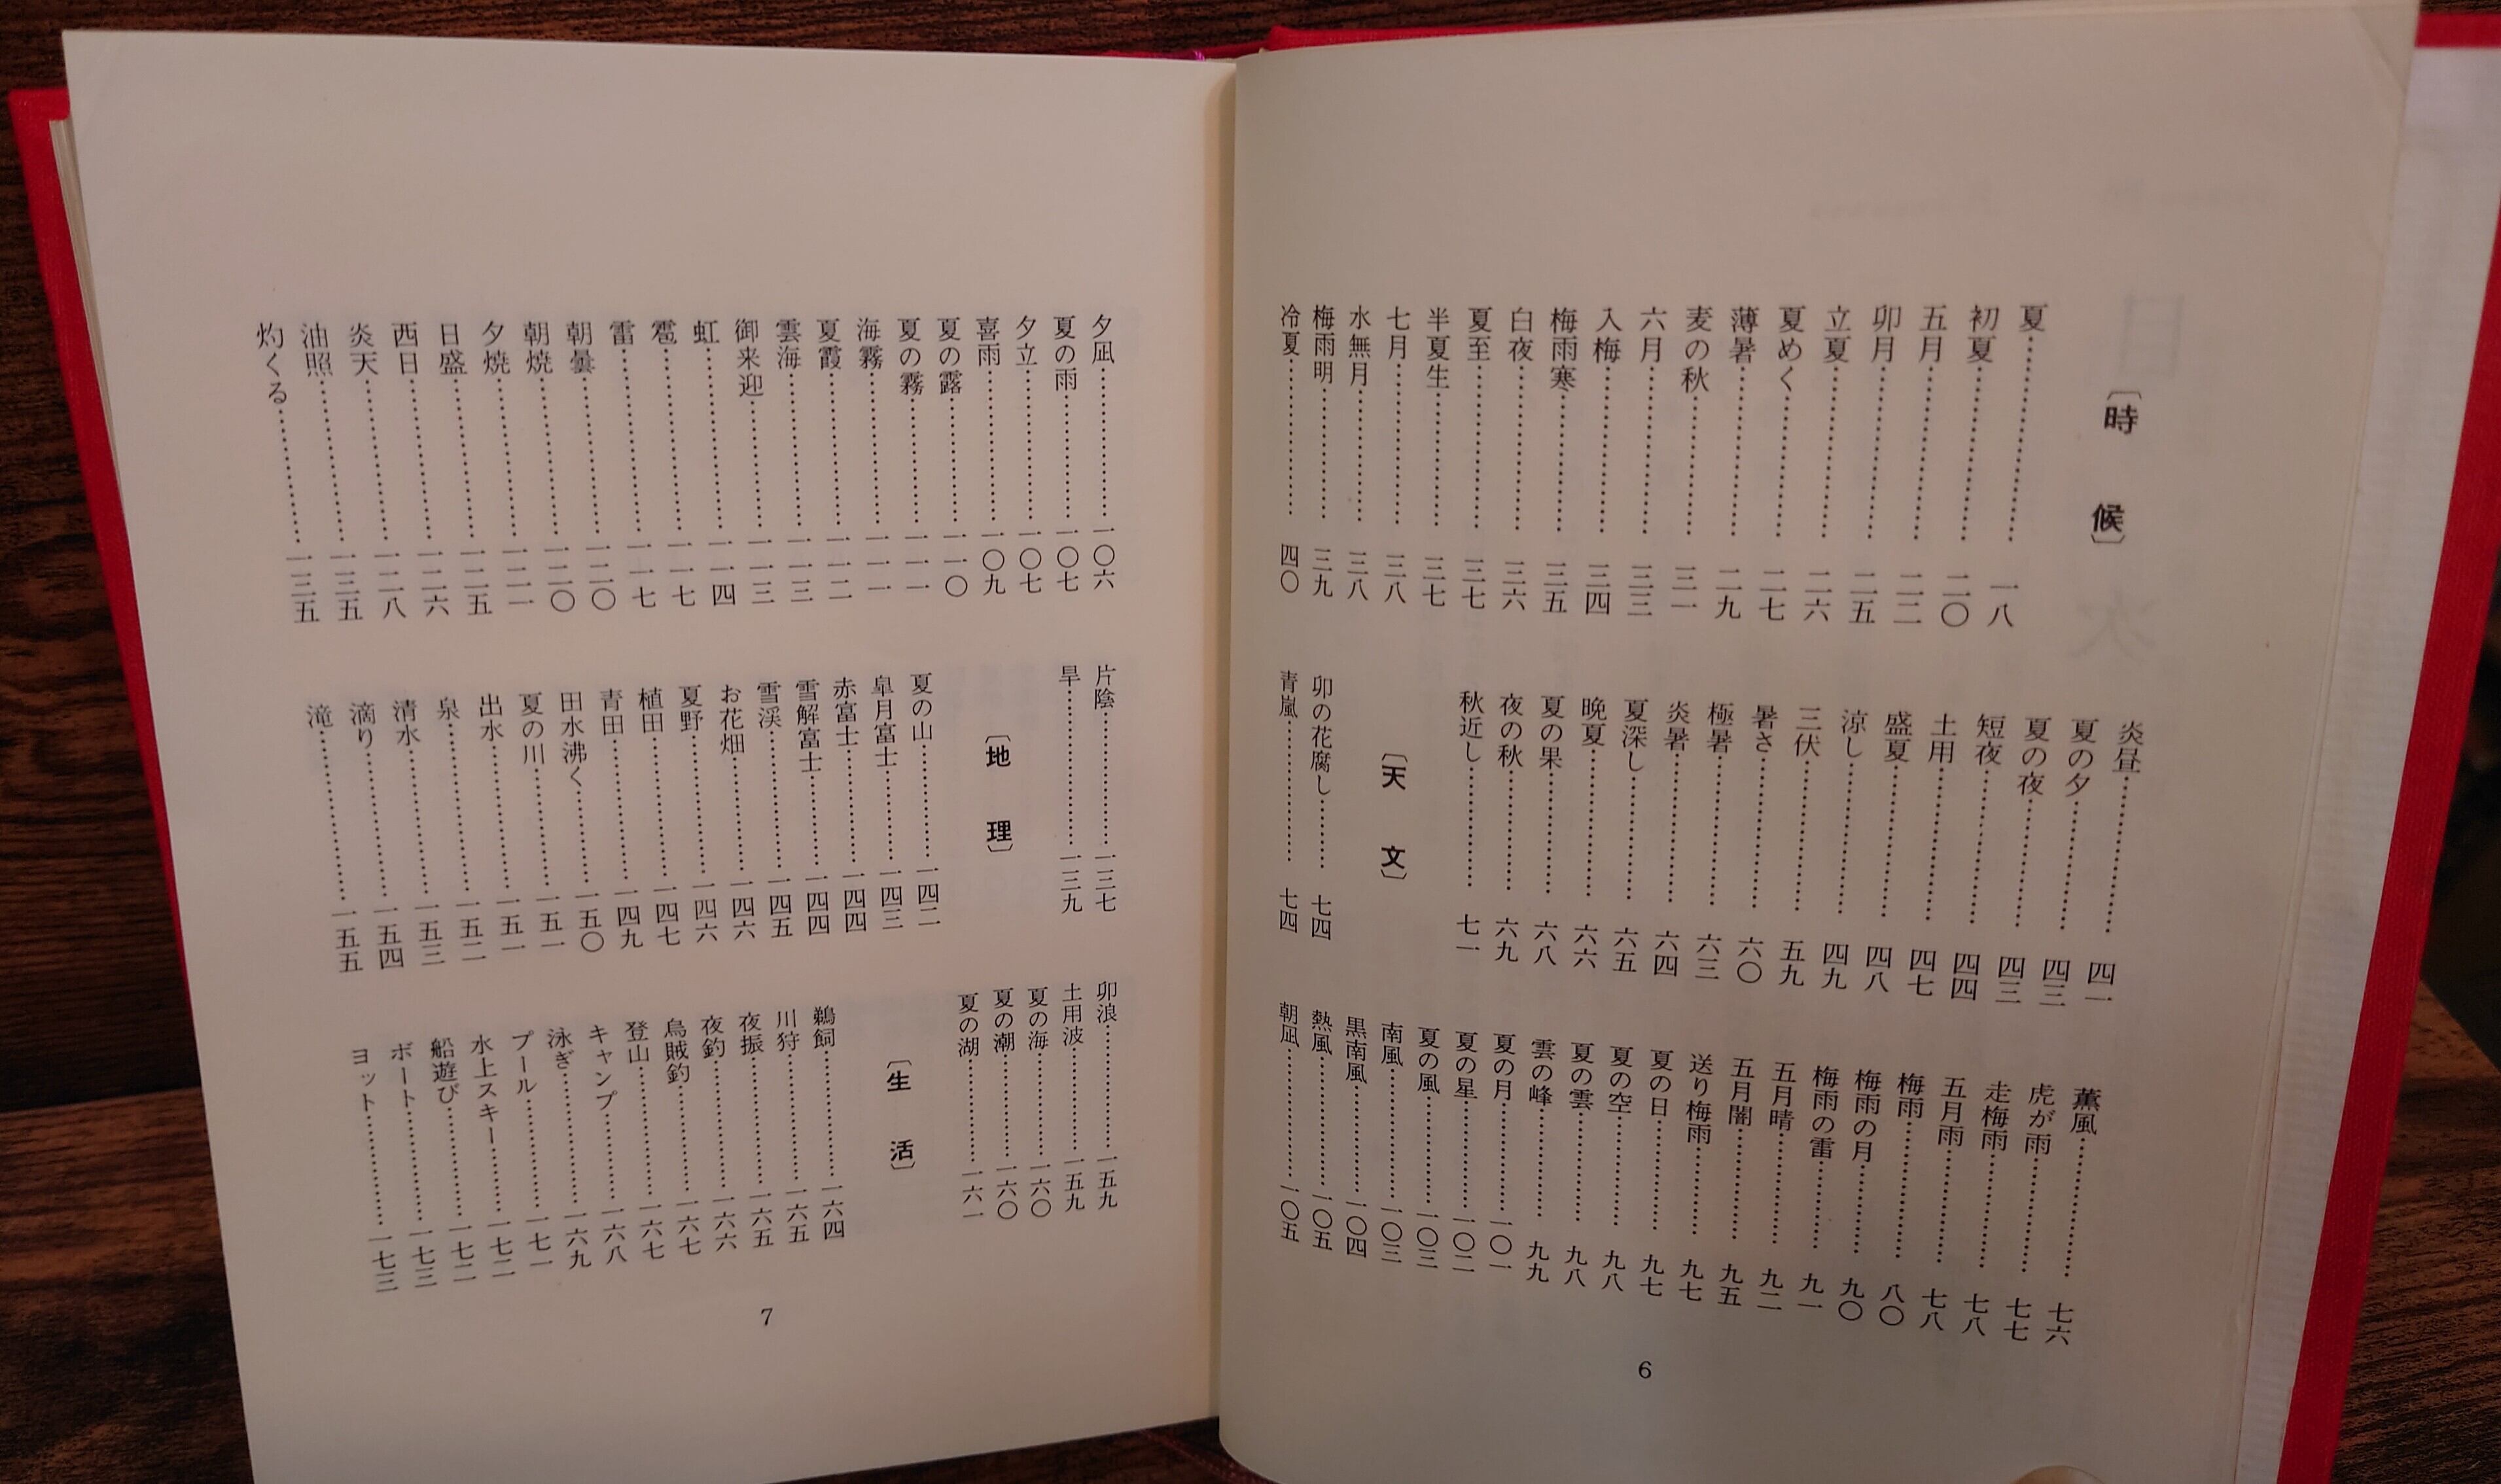 〔時候〕
夏……………一八
初夏……………二〇
五月……………二二
卯月……………二五
立夏……………二六
夏めく……………二七
薄暑……………二九
麦の秋……………三一
六月……………三三
入梅……………三四
梅雨寒……………三五
白夜……………三六
夏至……………三七
半夏生……………三七
七月……………三八
水無月……………三八
梅雨明……………三九
冷夏……………四〇
炎昼……………四一
夏の夕……………四三
夏の夜……………四三
短夜……………四四
土用……………四七
盛夏……………四八
涼し……………四九
三伏……………五九
暑さ……………六〇
極暑……………六三
炎暑……………六四
夏深し……………六五
晩夏……………六六
夏の果……………六八
夜の秋……………六九
秋近し……………七一
〔天文〕
卯の花腐し……………七四
青嵐……………七四
薫風……………七六
虎が雨……………七七
走梅雨……………七八
五月雨……………七八
梅雨……………八〇
梅雨の月……………九〇
梅雨の雷……………九一
五月晴……………九二
五月闇……………九五
送り梅雨……………九七
夏の日……………九七
夏の空……………九八
夏の雲……………九八
雲の峰……………九九
夏の月……………一〇一
夏の星……………一〇二
夏の風……………一〇三
南風……………一〇三
黒南風……………一〇四
熱風……………一〇五
朝凪……………一〇五
6
夕凪……………一〇六
夏の雨……………一〇七
夕立……………一〇七
喜雨……………一〇九
夏の露……………一一〇
夏の霧……………一一一
海霧……………一一一
夏霞……………一一二
雲海……………一一三
御来迎……………一一三
虹……………一一四
雹……………一一七
雷……………一一七
朝曇……………一二〇
朝焼……………一二〇
夕焼……………一二一
日盛……………一二五
西日……………一二六
炎天……………一二八
油照……………一三五
灼くる……………一三五
片陰……………一三七
旱……………一三九
〔地理〕
夏の山……………一四二
皐月富士……………一四三
赤富士……………一四四
雪解富士……………一四四
雪渓……………一四五
お花畑……………一四六
夏野……………一四六
植田……………一四七
青田……………一四九
田水沸く……………一五〇
夏の川……………一五一
出水……………一五一
泉……………一五二
清水……………一五三
滴り……………一五四
滝……………一五五
卯浪……………一五九
土用波……………一五九
夏の海……………一六〇
夏の潮……………一六〇
夏の湖……………一六一
〔生活〕
鵜飼……………一六四
川狩……………一六五
夜振……………一六五
夜釣……………一六六
烏賊釣……………一六七
登山……………一六七
キャンプ……………一六八
泳ぎ……………一六九
プール……………一七一
水上スキー……………一七二
船遊び……………一七二
ボート……………一七三
ヨット……………一七三
7